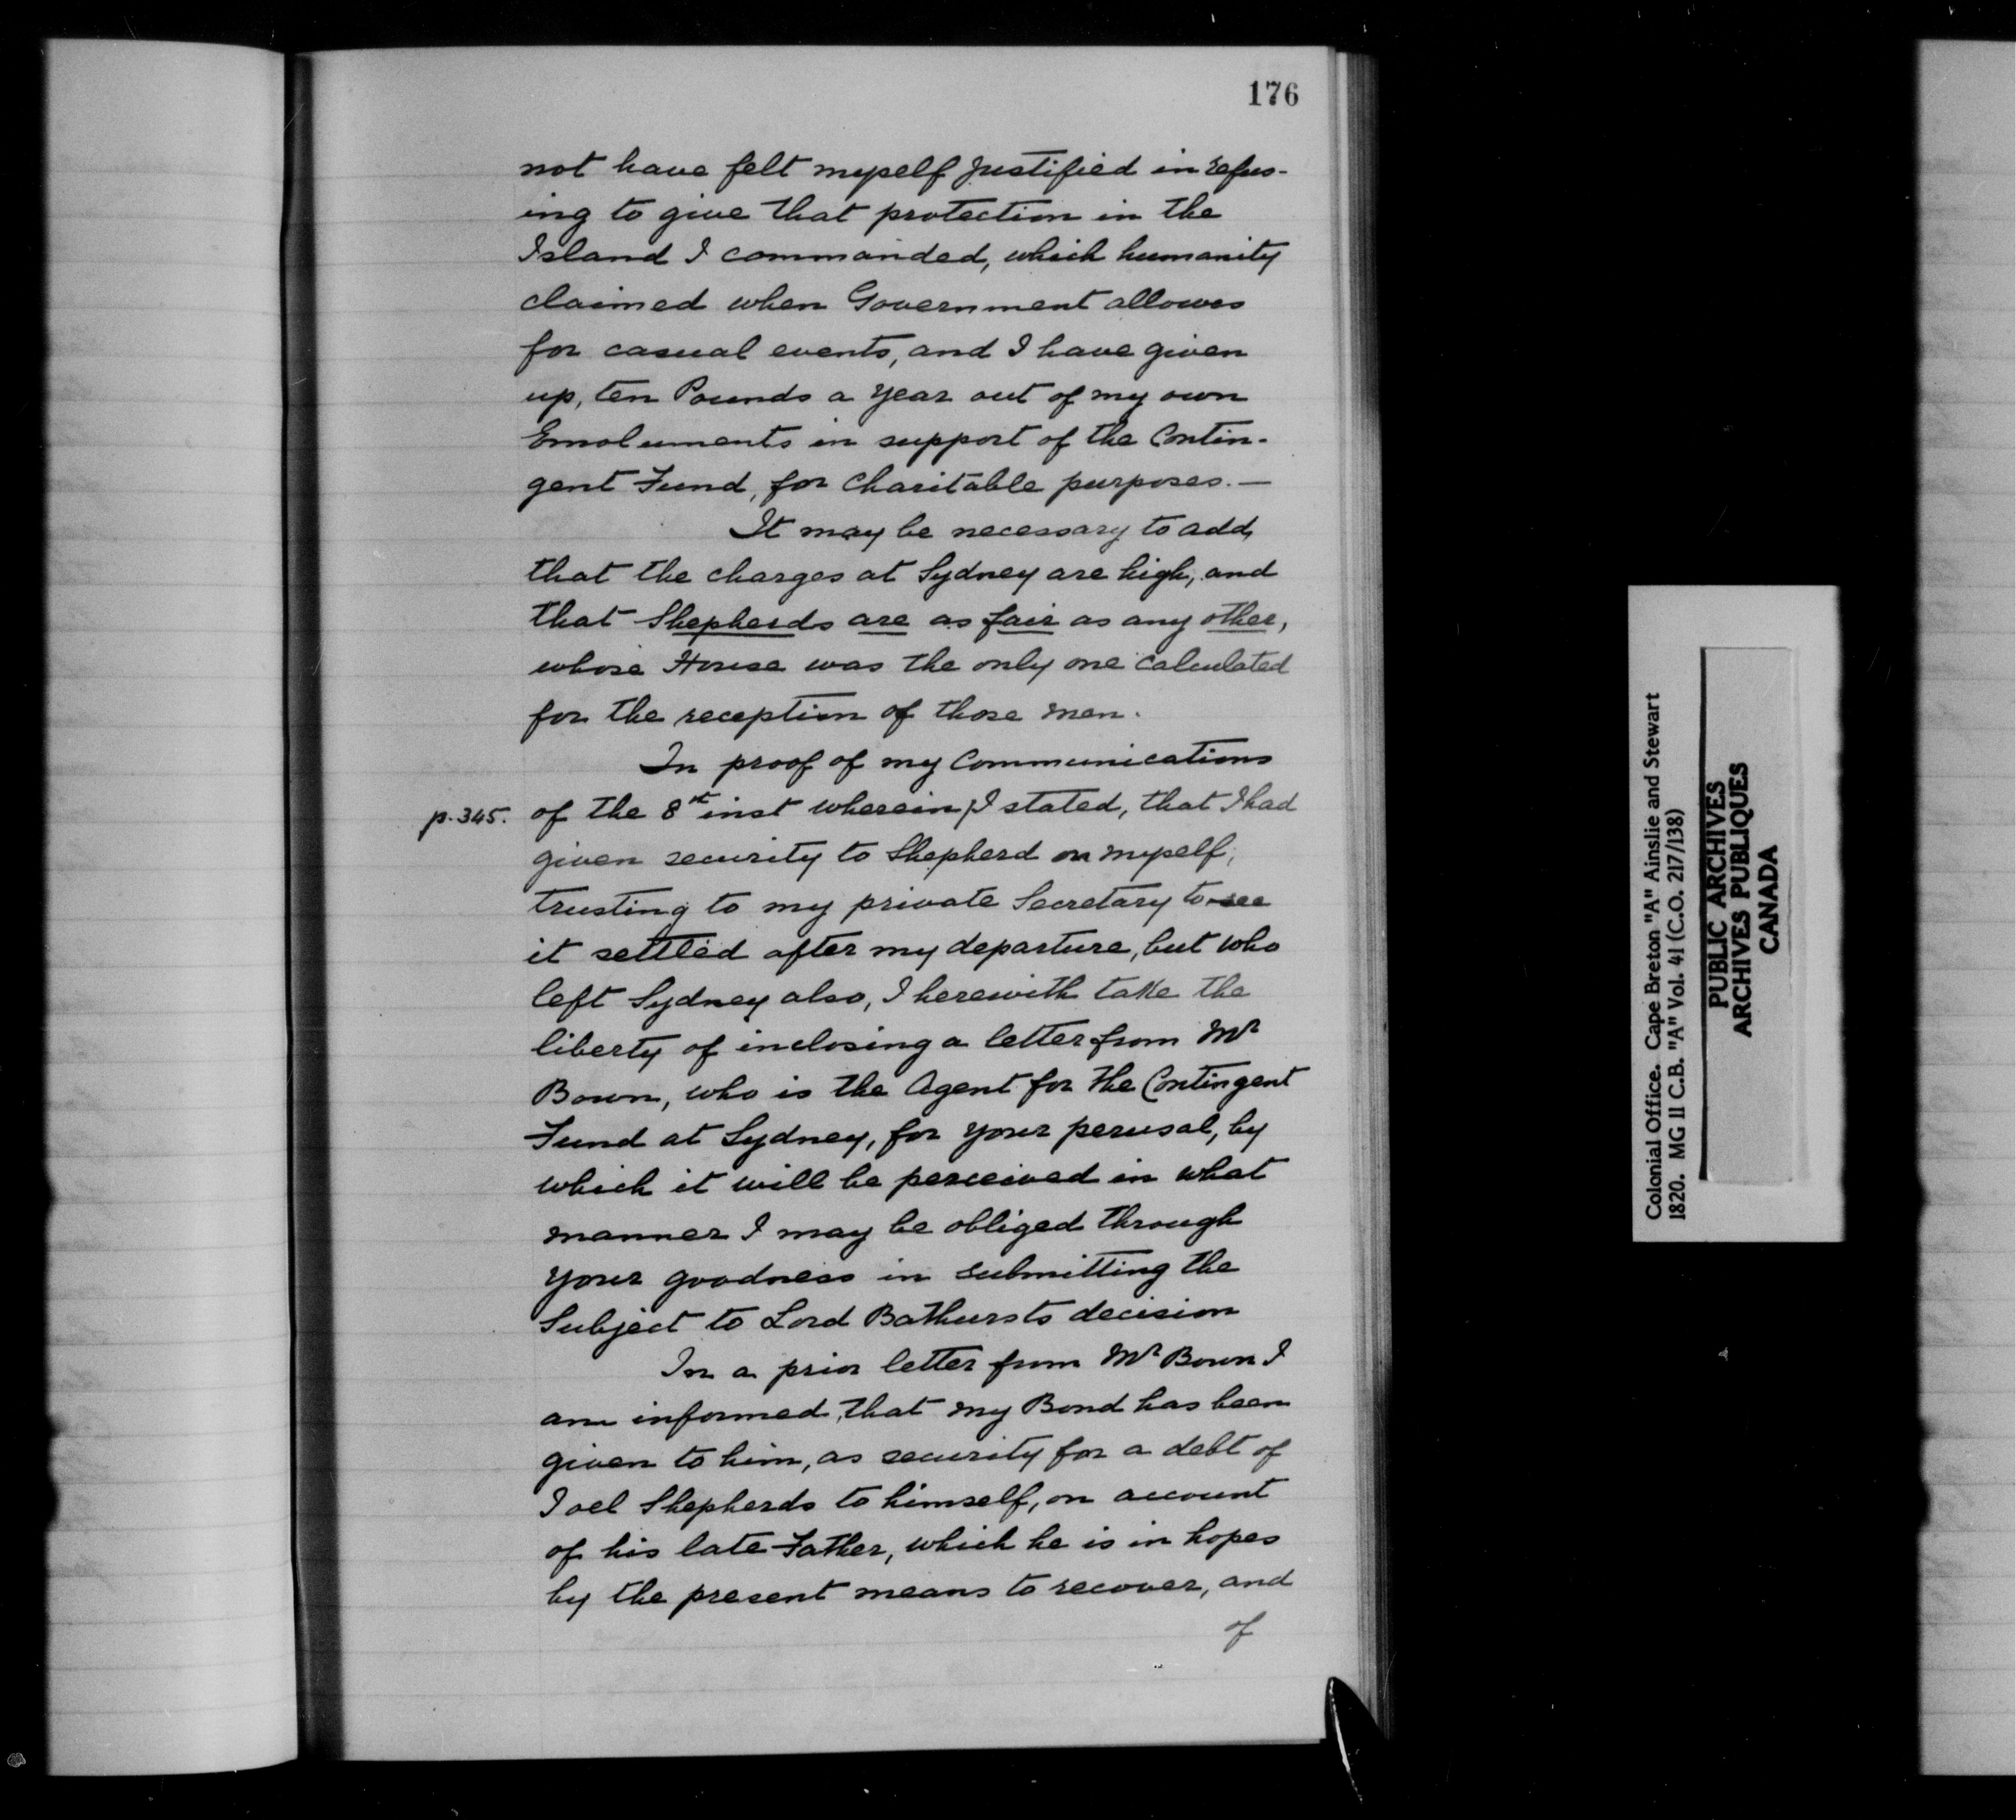 176
not have felt myself justified in refus-
ing to give that protection in the
Island I commanded, which humanity
claimed when Government allows
for casual events, and I have given
up, ten Pounds a year out of my own
Emoluments in support of the Contin-
gent Fund, for Charitable purposes.—
It may be necessary to add,
that the charges at Sydney are high, and
that Shepherds are as fair as any other,
whose House was the only one calculated
for the reception of those men.
In proof of my Communications
p.345. of the 8th inst wherein, I stated, that I had
given security to Shepherd on myself,
trusting to my private Secretary to see
it settled after my departure, but who
left Sydney also, I herewith take the
liberty of inclosing a letter from Mr
Bown, who is the Agent for the Contingent
Fund at Sydney, for your perusal, by
which it will be perceived in what
manner I may be obliged through
your goodness in submitting the
Subject to Lord Bathursts decision
In a prior letter from Mr Bown I
am informed, that my Bond has been
given to him, as security for a debt of
Joel Shepherds to himself, on account
of his late Father, which he is in hopes
by the present means to recover, and
of
Colonial Office. Cape Breton "A" Ainslie and Stewart
1820. MG 11 C.B. "A" Vol. 41 (C.O. 217/138)
PUBLIC ARCHIVES
ARCHIVES PUBLIQUES
CANADA